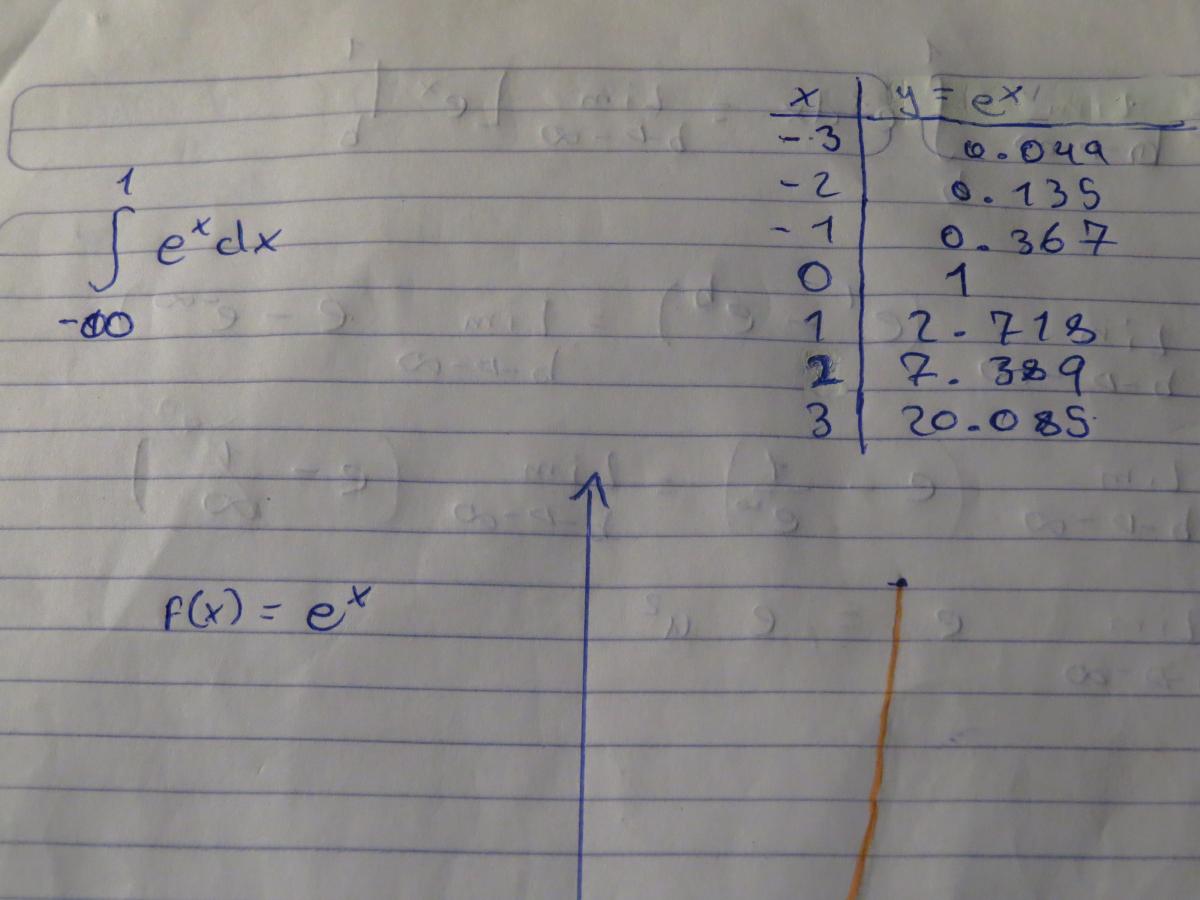 x | y = e^x
-3 | 0.049
-2 | 0.135
-1 | 0.367
0 | 1
1 | 2.718
2 | 7.389
3 | 20.085
∫_{-∞}^{1} e^x dx
f(x) = e^x